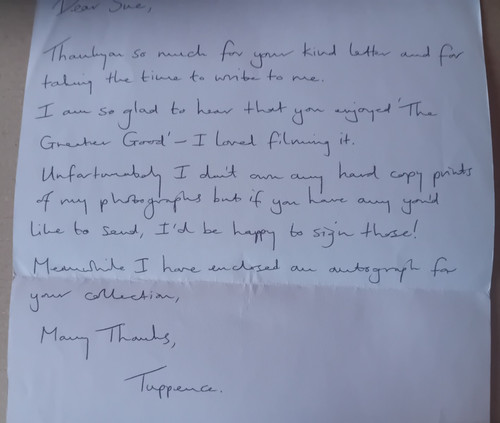 Dear Sue,
Thankyou so much for your kind letter and for
taking the time to write to me.
I am so glad to hear that you enjoyed 'The
Greater Good' – I loved filming it.
Unfortunately I don't own any hard copy prints
of my photographs but if you have any you'd
like to send, I'd be happy to sign those!
Meanwhile I have enclosed an autograph for
your collection,
Many Thanks,
Tuppence.